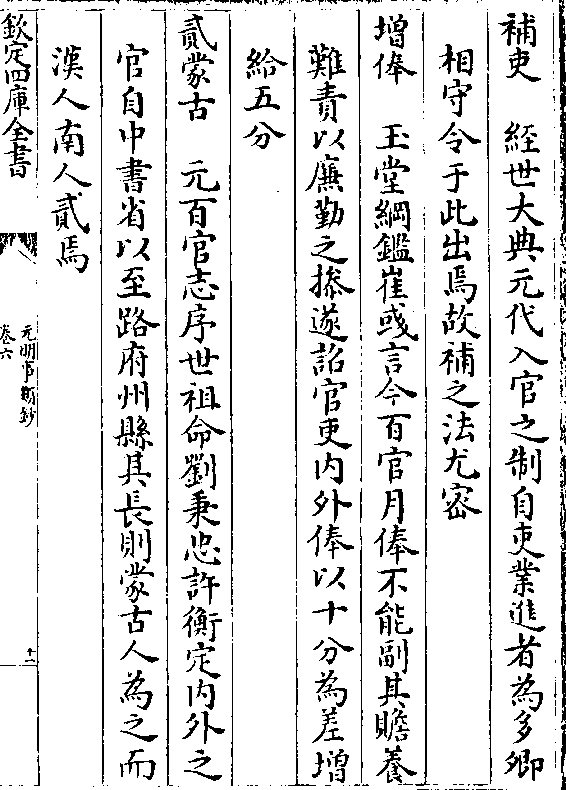 補吏　經世大典元代入官之制自吏業進者為多卿
相守令于此出焉故補之法尤密
增俸　玉堂綱鑑崔彧言今百官月俸不能副其贍養
難責以廉勤之操遂詔官吏内外俸以十分為差增
給五分
貳蒙古　元百官志序世祖命劉秉忠許衡定内外之
官自中書省以至路府州縣其長則蒙古人為之而
漢人南人貳焉
欽定四庫全書
元明事類鈔
卷六
十二